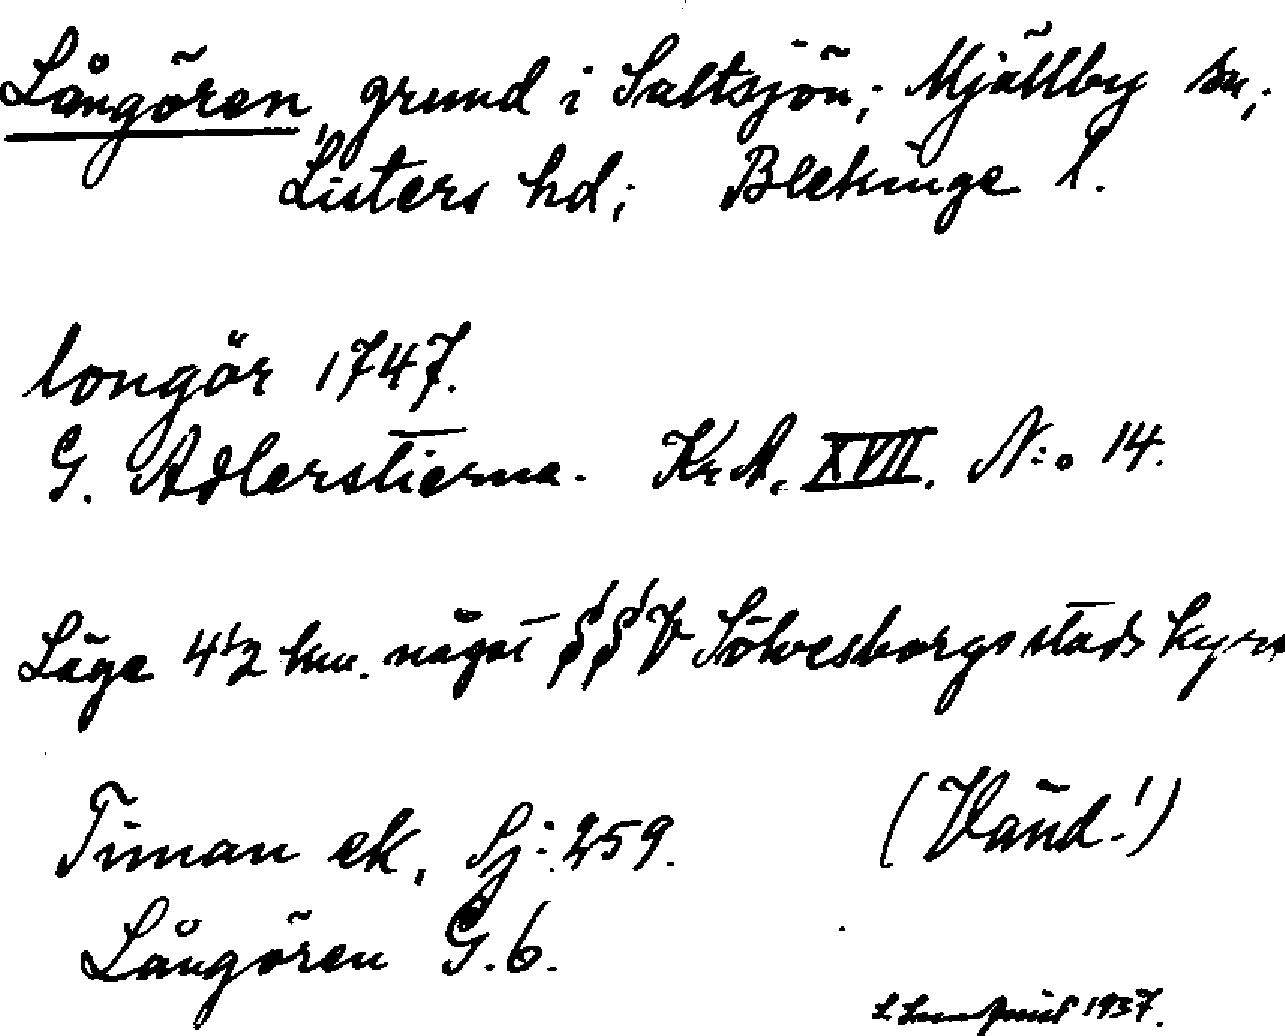 Långören, grund i Saltsjön; Mjällby sn;
Listers hd; Blekinge l.
longör 1747.
G. Adlerstierna. Kr.A. XVII. N:o 14.
Läge 4½ km. något S.S.V Sölvesborgs stads kyrk
Timan ek. Sj: 259.
(Vänd!)
Långören G.6.
1937.